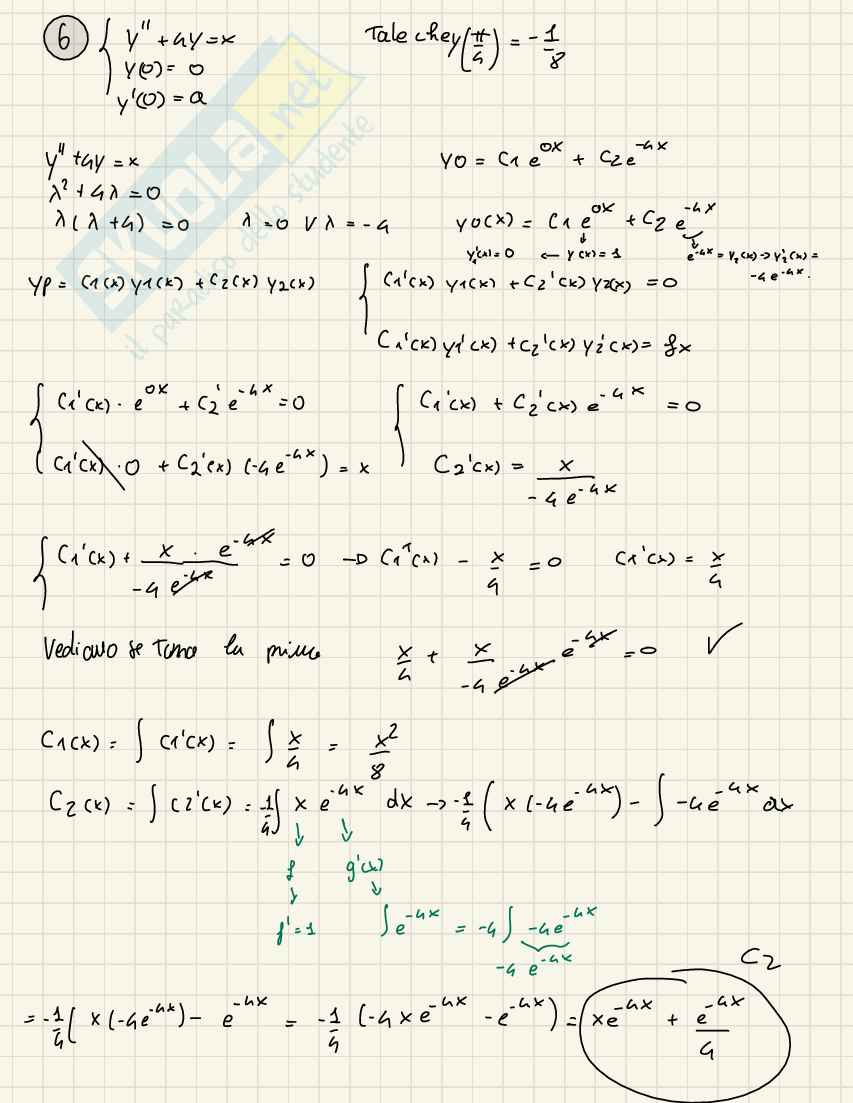 6 { y'' + 4y = x Tale che y(π/4) = -1/8
y(0) = 0
y'(0) = a
SKUOLA.net
il paradiso dello studente
y'' + 4y = x y0 = C1 e^0x + C2 e^-4x
λ² + 4λ = 0
λ(λ+4) = 0 λ = 0 ∨ λ = -4 y0(x) = C1 e^0x + C2 e^-4x
y1'(x) = 0 ← y(x) = 1 e^-4x = y2(x) → y2'(x) =
-4 e^-4x.
yp = C1(x) y1(x) + C2(x) y2(x) { C1'(x) y1(x) + C2'(x) y2(x) = 0
C1'(x) y1'(x) + C2'(x) y2'(x) = fx
{ C1'(x) · e^0x + C2' e^-4x = 0 { C1'(x) + C2'(x) e^-4x = 0
C1'(x) · 0 + C2'(x) (-4e^-4x) = x C2'(x) = x / -4 e^-4x
{ C1'(x) + x · e^-4x / -4 e^-4x = 0 → C1'(x) - x/4 = 0 C1'(x) = x/4
Vediamo se torna la prima x/4 + x / -4 e^-4x e^-4x = 0 ✓
C1(x) = ∫ C1'(x) = ∫ x/4 = x²/8
C2(x) = ∫ C2'(x) = -1/4 ∫ x e^-4x dx → -1/4 ( x(-4e^-4x) - ∫ -4e^-4x dx
↓ ↓
f g'(x)
↓ ↓
f' = 1 ∫ e^-4x = -4 ∫ -4e^-4x
-4 e^-4x
C2
= -1/4 ( x(-4e^-4x) - e^-4x = -1/4 (-4xe^-4x - e^-4x) = xe^-4x + e^-4x/4